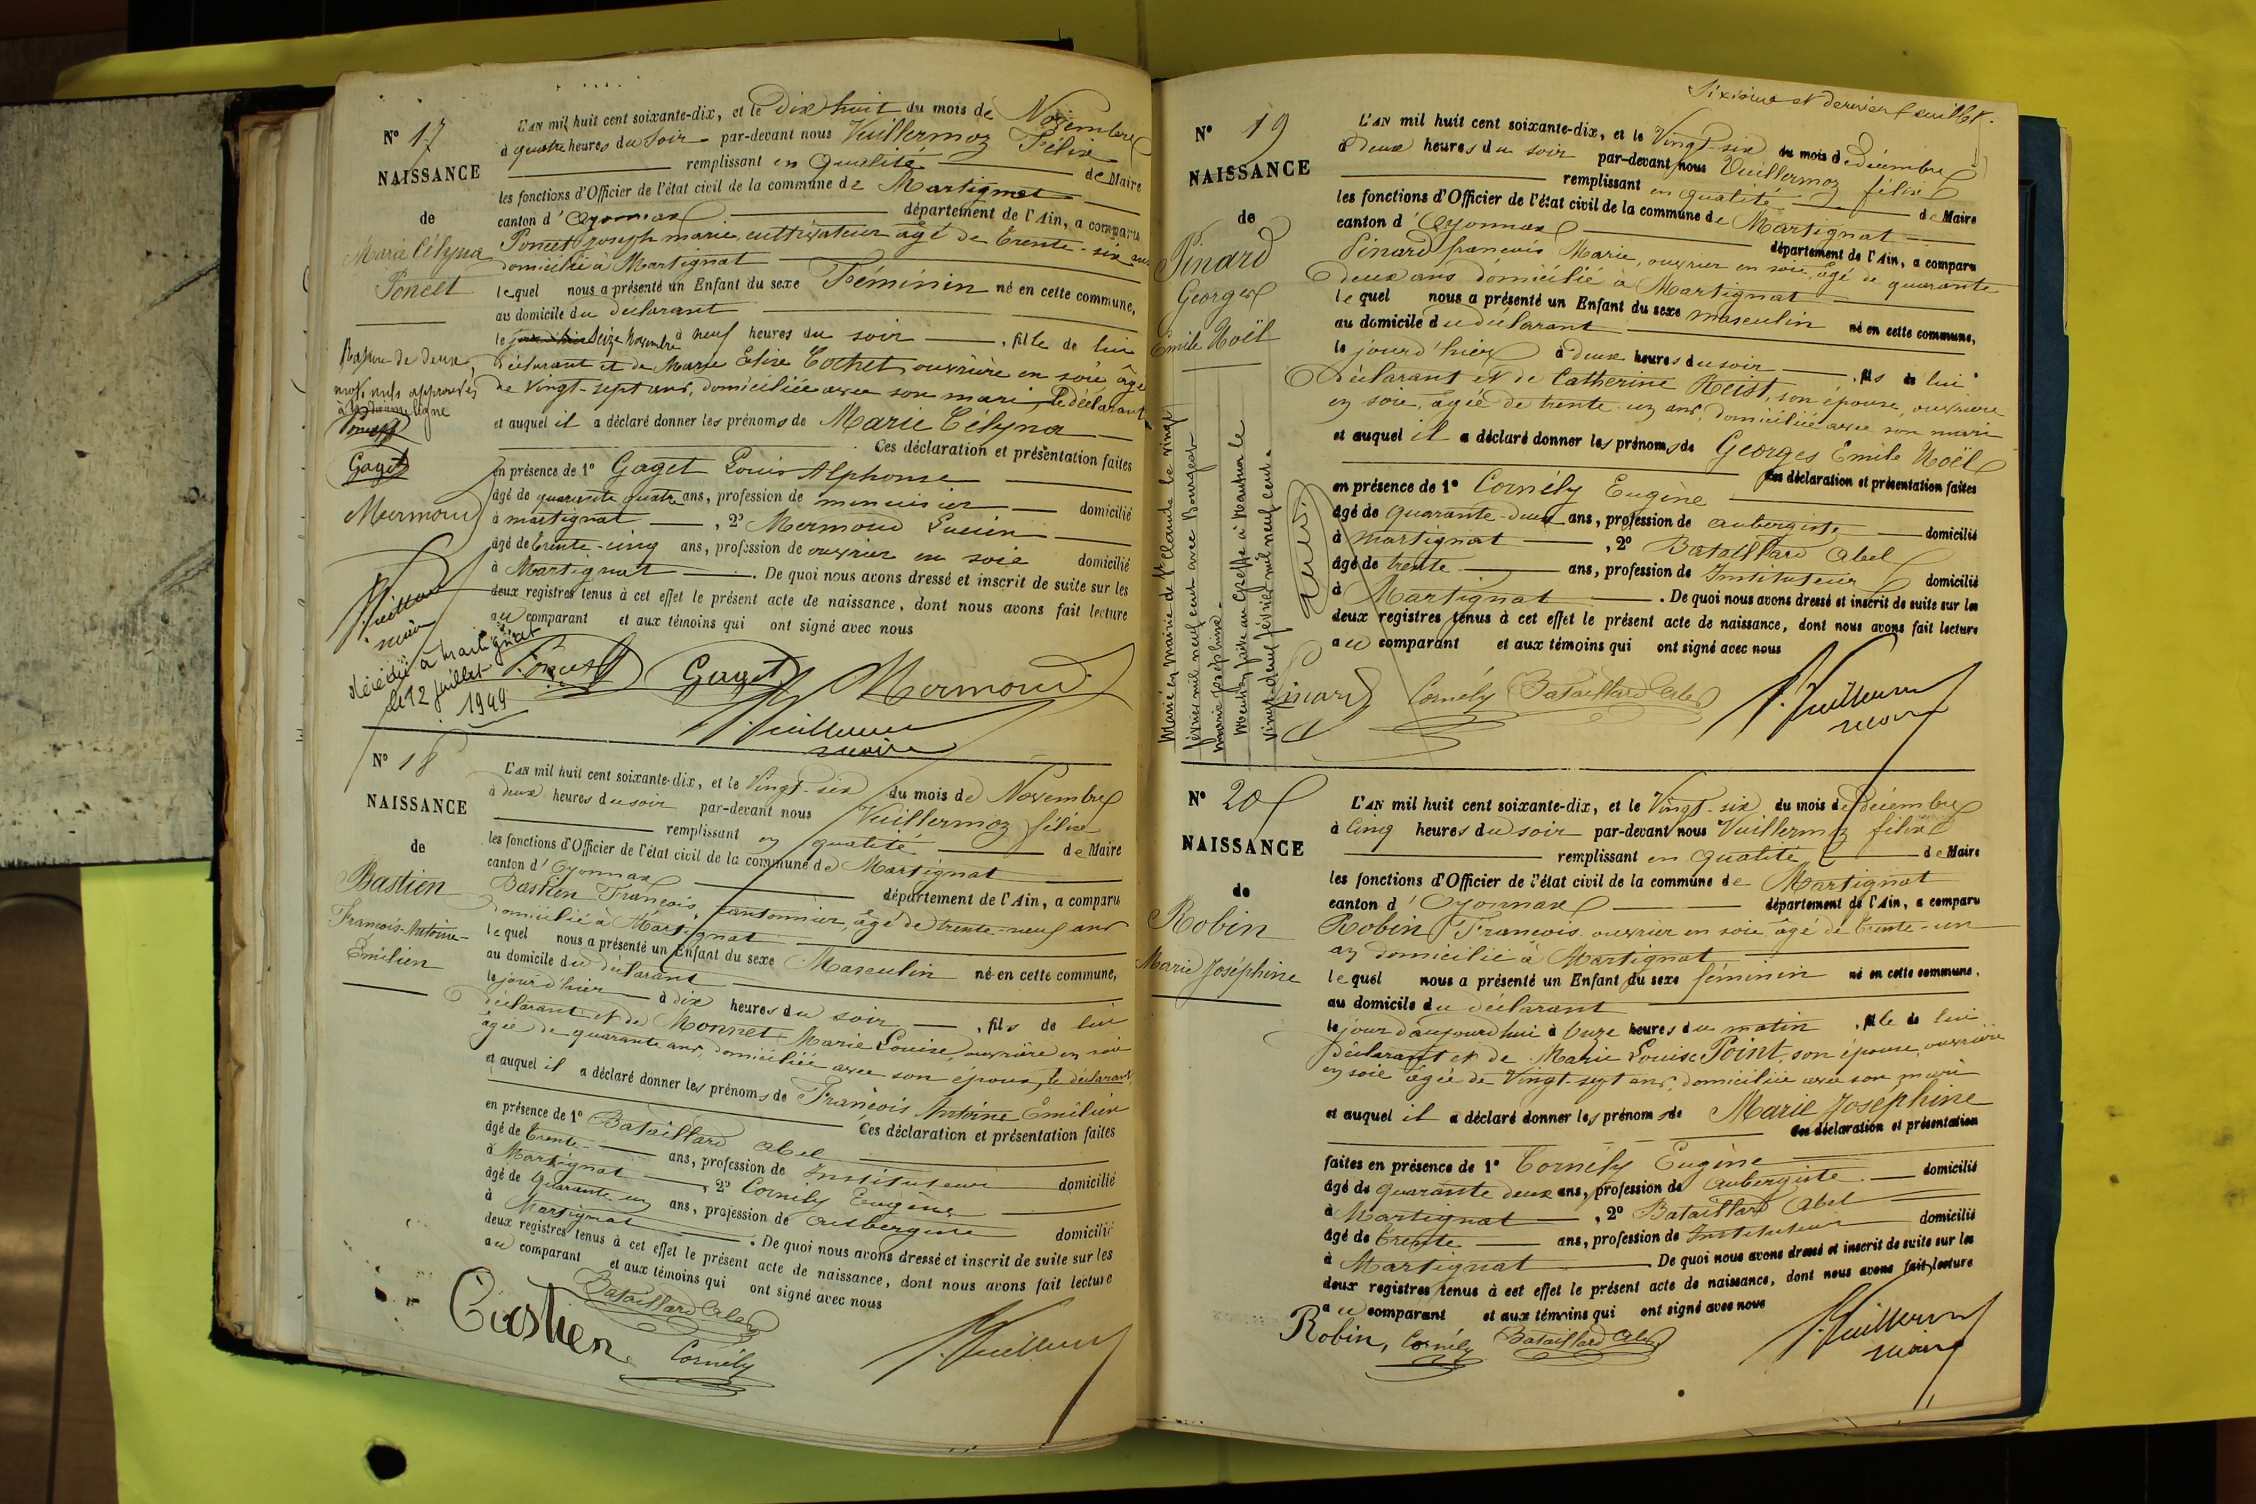 N° 17
NAISSANCE
de
Marie Célyna
Poncet
Rature de deux
mots nuls approuvés
à la ligne
Poncet
Gaget
Mermoud
Vuillermoz
maire
Décédé à Martignat
le 12 juillet
1949
L'AN mil huit cent soixante-dix, et le Dix huit du mois de Novembre
à quatre heures du soir par-devant nous Vuillermoz Félix
remplissant en qualité de Maire
les fonctions d'Officier de l'état civil de la commune de Martignat
canton d'Oyonnax département de l'Ain, a comparu
Poncet Joseph marie, cultivateur âgé de trente-six ans
domicilié à Martignat
lequel nous a présenté un Enfant du sexe Féminin né en cette commune,
au domicile du déclarant
le jour d'hier Seize Novembre à neuf heures du soir, fille de lui
déclarant et de Marie Elise Cochet, ouvrière en soie âgée
de vingt-sept ans, domiciliée avec son mari, le déclarant
et auquel il a déclaré donner les prénoms de Marie Célyna
Ces déclaration et présentation faites
en présence de 1° Gaget Louis Alphonse
âgé de quarante quatre ans, profession de menuisier domicilié
à martignat, 2° Mermoud Lucien
âgé de trente-cinq ans, profession de ouvrier en soie domicilié
à Martignat. De quoi nous avons dressé et inscrit de suite sur les
deux registres tenus à cet effet le présent acte de naissance, dont nous avons fait lecture
au comparant et aux témoins qui ont signé avec nous
Poncet Gaget Mermoud
Vuillermoz
maire
N° 18
NAISSANCE
de
Bastien
François-Antoine-
Émilien
L'AN mil huit cent soixante-dix, et le Vingt-six du mois de Novembre
à deux heures du soir par-devant nous Vuillermoz félix
remplissant en qualité de Maire
les fonctions d'Officier de l'état civil de la commune de Martignat
canton d'Oyonnax département de l'Ain, a comparu
Bastien François, cantonnier, âgé de trente-neuf ans
domicilié à Martignat
lequel nous a présenté un Enfant du sexe Masculin né en cette commune,
au domicile du déclarant
le jour d'hier à dix heures du soir, fils de lui
déclarant et de Monnet Marie Louise, ouvrière en soie
âgée de quarante ans, domiciliée avec son époux, le déclarant
et auquel il a déclaré donner les prénoms de François Antoine Émilien
Ces déclaration et présentation faites
en présence de 1° Bataillard Abel
âgé de trente ans, profession de Instituteur domicilié
à Martignat, 2° Cornély Eugène
âgé de quarante un ans, profession de aubergiste domicilié
à Martignat. De quoi nous avons dressé et inscrit de suite sur les
deux registres tenus à cet effet le présent acte de naissance, dont nous avons fait lecture
au comparant et aux témoins qui ont signé avec nous
Bastien Bataillard Abel
Cornély
Vuillermoz
Sixième et dernier feuillet.
N° 19
NAISSANCE
de
Pinard
Georges
Emile Noël
Marié en mairie de St Claude le vingt
février mil neuf cent avec Bourgeat
Marie Joséphine.
Mention faite au greffe à Nantua le
vingt-neuf février mil neuf cent.
L'AN mil huit cent soixante-dix, et le Vingt-six du mois de Décembre
à deux heures du soir par-devant nous Vuillermoz félix
remplissant en qualité de Maire
les fonctions d'Officier de l'état civil de la commune de Martignat
canton d'Oyonnax département de l'Ain, a comparu
Pinard françois Marie, ouvrier en soie, âgé de quarante
deux ans domicilié à Martignat
lequel nous a présenté un Enfant du sexe masculin né en cette commune,
au domicile du déclarant
le jour d'hier à deux heures du soir, fils de lui
déclarant et de Catherine Reist, son épouse, ouvrière
en soie, âgée de trente un ans, domiciliée avec son mari
et auquel il a déclaré donner les prénoms de Georges Emile Noël
Ces déclaration et présentation faites
en présence de 1° Cornély Eugène
âgé de quarante-deux ans, profession de aubergiste, domicilié
à martignat, 2° Bataillard Abel
âgé de trente ans, profession de Instituteur domicilié
à Martignat. De quoi nous avons dressé et inscrit de suite sur les
deux registres tenus à cet effet le présent acte de naissance, dont nous avons fait lecture
au comparant et aux témoins qui ont signé avec nous
Pinard Cornély Bataillard Abel
Vuillermoz
maire
N° 20
NAISSANCE
de
Robin
Marie Joséphine
L'AN mil huit cent soixante-dix, et le Vingt-six du mois de Décembre
à cinq heures du soir par-devant nous Vuillermoz félix
remplissant en qualité de Maire
les fonctions d'Officier de l'état civil de la commune de Martignat
canton d'Oyonnax département de l'Ain, a comparu
Robin François ouvrier en soie, âgé de trente-un
an domicilié à Martignat
lequel nous a présenté un Enfant du sexe féminin né en cette commune,
au domicile du déclarant
le jour d'aujourd'hui à Onze heures du matin, fille de lui
déclarant et de Marie Louise Point, son épouse, ouvrière
en soie âgée de Vingt-sept ans, domiciliée avec son mari
et auquel il a déclaré donner les prénoms de Marie Joséphine
Ces déclaration et présentation
faites en présence de 1° Cornély Eugène
âgé de quarante deux ans, profession de aubergiste domicilié
à Martignat, 2° Bataillard Abel
âgé de trente ans, profession de Instituteur domicilié
à Martignat De quoi nous avons dressé et inscrit de suite sur les
deux registres tenus à cet effet le présent acte de naissance, dont nous avons fait lecture
au comparant et aux témoins qui ont signé avec nous
Robin, Cornély Bataillard Abel
Vuillermoz
maire